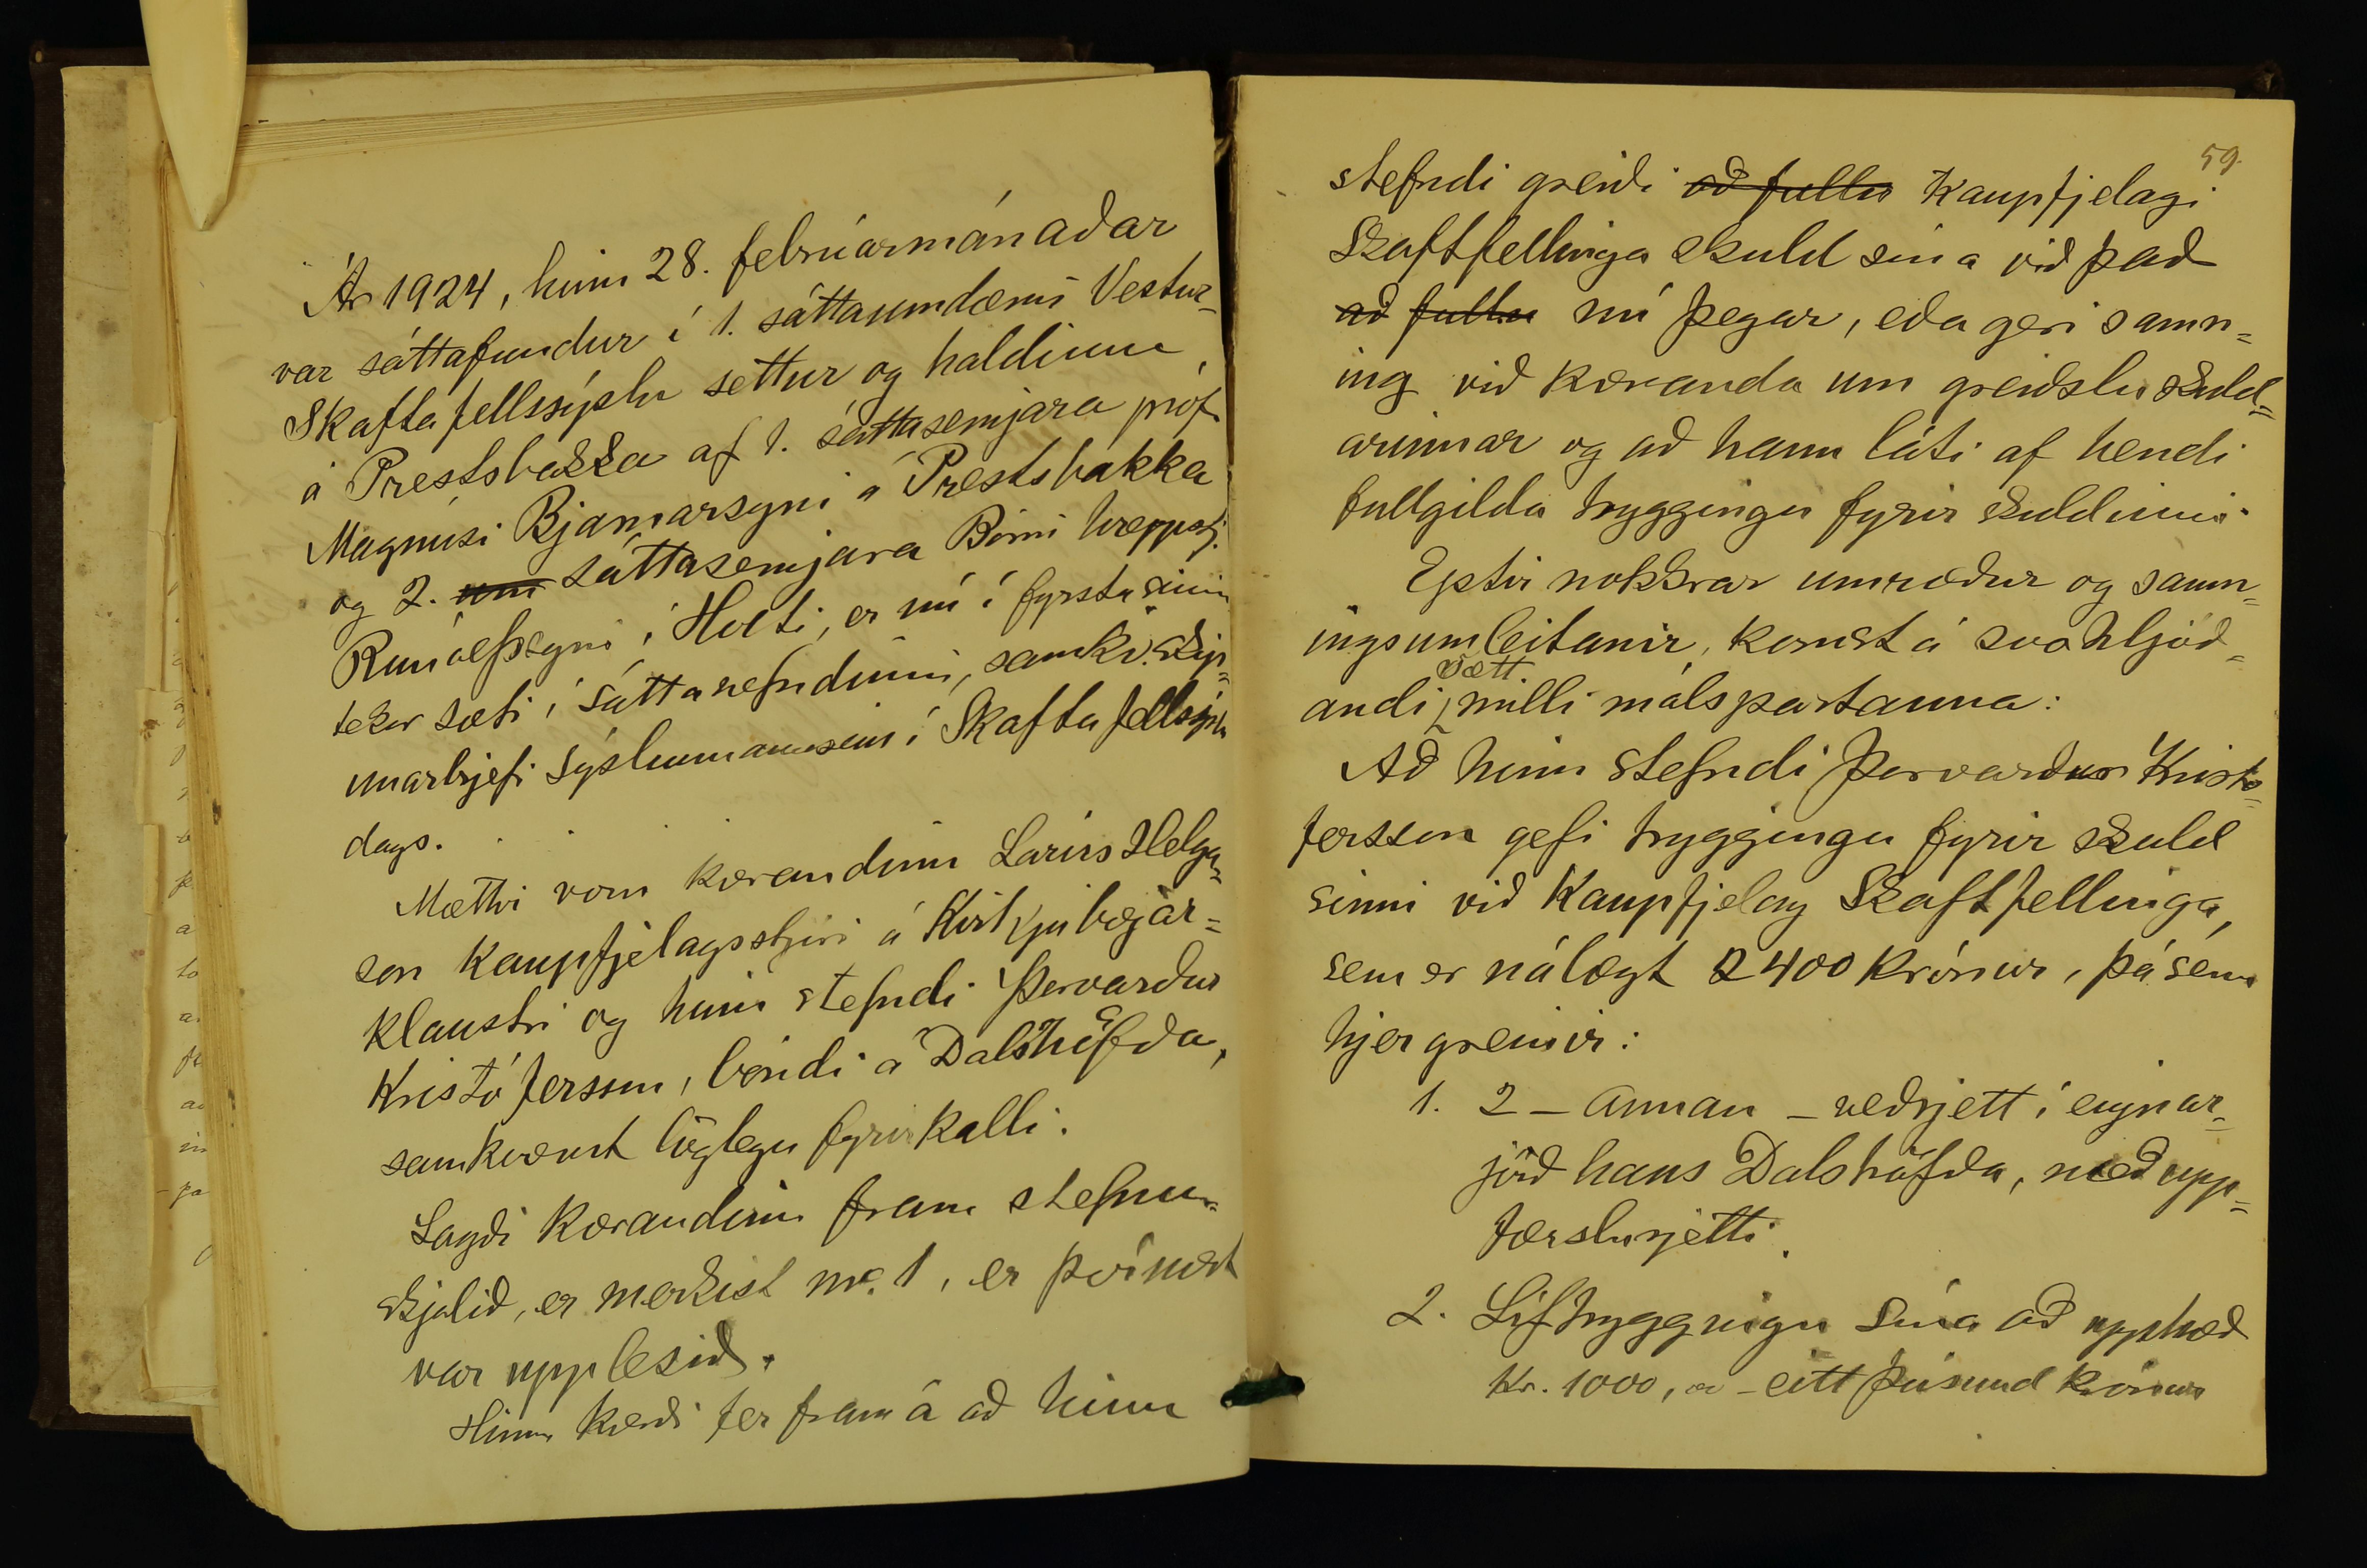 Ár 1924, hinn 28. febrúarmánaðar
var sáttafundur í 1. sáttaumdæmi Vestur-
Skaftafellssýslu settur og haldinn
á Prestsbakka af 1. sáttasemjara próf.
Magnúsi Bjarnarsyni á Prestsbakka
og 2. um sáttasemjara Birni hreppstj.
Runólfssyni í Holti, er nú í fyrsta sinn
tekur sæti í sáttanefndinni, samkv. skip-
unarbrjefi sýslumannsins í Skaftafellssýslu
dags.
Mættir voru kærandinn Lárus Helga-
son kaupfjelagsstjóri á Kirkjubæjar=
klaustri og hinn stefndi Þorvarður
Kristófersson, bóndi á Dalshöfða,
samkvæmt löglegu fyrirkalli.
Lagði kærandinn fram stefnu-
skjalið, er merkist nr. 1, er þvínæst
var upplesið.
Hinn kærði fer fram á að hinn
59.
stefndi greiði að fullu Kaupfjelagi
Skaftfellinga skuld sína við það
að fullu nú þegar, eða geri samn=
ing við kæranda um greiðslu skuld=
arinnar og að hann láti af hendi
fullgilda tryggingu fyrir skuldinni.
Eptir nokkrar umræður og samn=
ingsumleitanir, komst á svohljóð=
andi sætt milli málspartanna:
Að hinn stefndi Þorvarður Kristó=
fersson gefi tryggingu fyrir skuld
sinni við Kaupfjelag Skaftfellinga,
sem er nálægt 2400 krónur, þá sem
hjer greinir:
1. 2 - annan - veðrjett í eignar=
jörð hans Dalshöfða, með upp=
færslurjetti.
2. Líftryggingu sína að upphæð
Kr. 1000, - eitt þúsund krónur